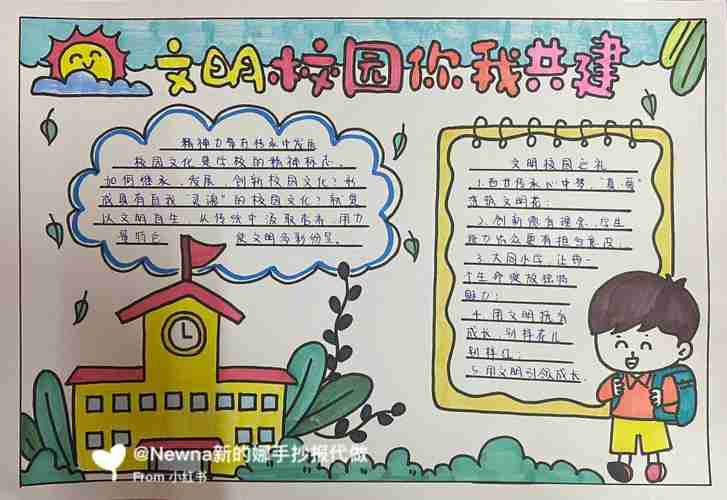 文明校园你我共建
精神力量在传承中发展
校园文化是学校的精神标志。
如何继承、发展、创新校园文化?形
成具有自我“灵魂”的校园文化?就要
以文明自生,从传统中汲取,用力
使文明多彩纷呈。
文明校园之礼
1.百廿传承心中梦,
筑文明花;
2.创新德育理念,学生
能力出众更有担当意识;
3.大同小学,让每一
个生命绽放独特
魅力;
4.用文明抚育
成长,别样花儿
别样红;
5.用文明引领成长.
@Newna新的娜手抄报代做
From 小红书